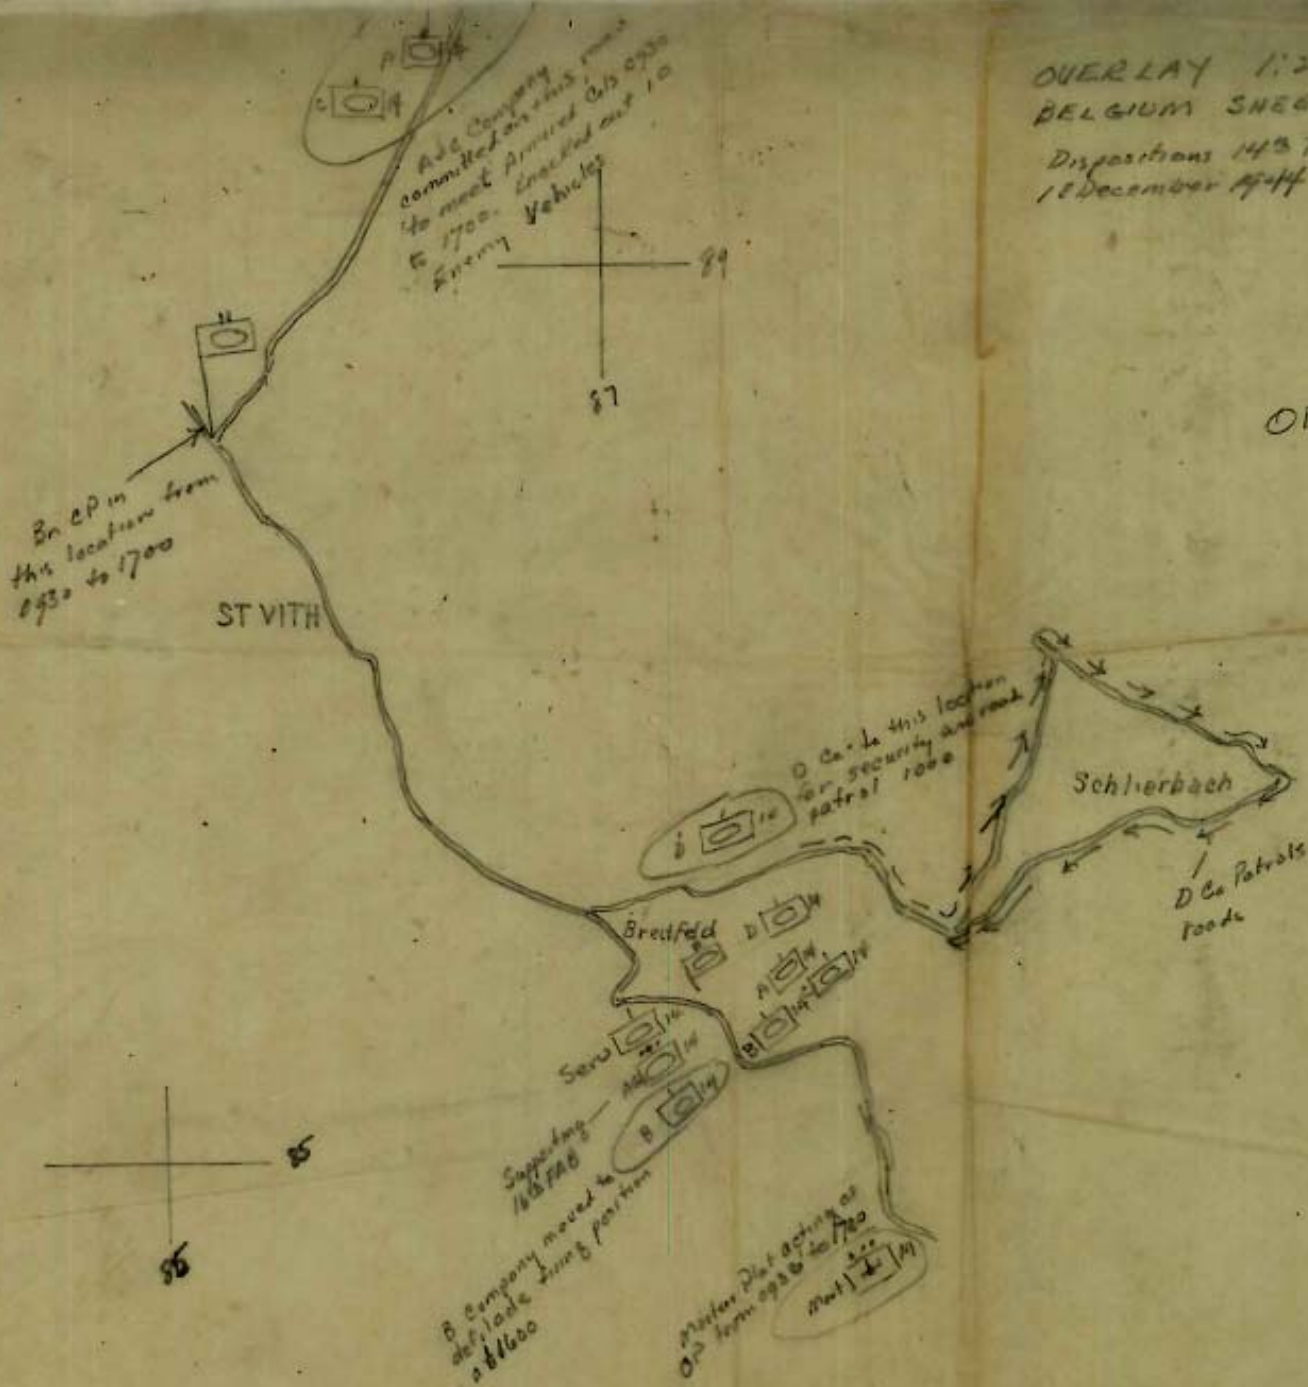 OVERLAY
BELGIUM
Dispositions
December
A
14
C
14
A&C Company
committed on this
to meet Armored 0930
to 1700. Knocked out 10
Enemy Vehicles
89
87
Bn CP in
this location from
0930 to 1700
ST VITH
D Co. to this location
for security and road
patrol 1000
D
14
Schlierbach
D Co Patrols
roads
Breitfeld
D
14
A
14
14
B
14
Serv
14
14
B
14
Supporting
16th FAB
B Company moved to
defilade firing position
at 1600
85
85
Mortar Plat acting as
OP from 0930 to 1700
Mort
14